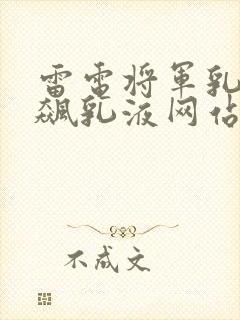 雷电将军乳
飙乳液网站
不成文